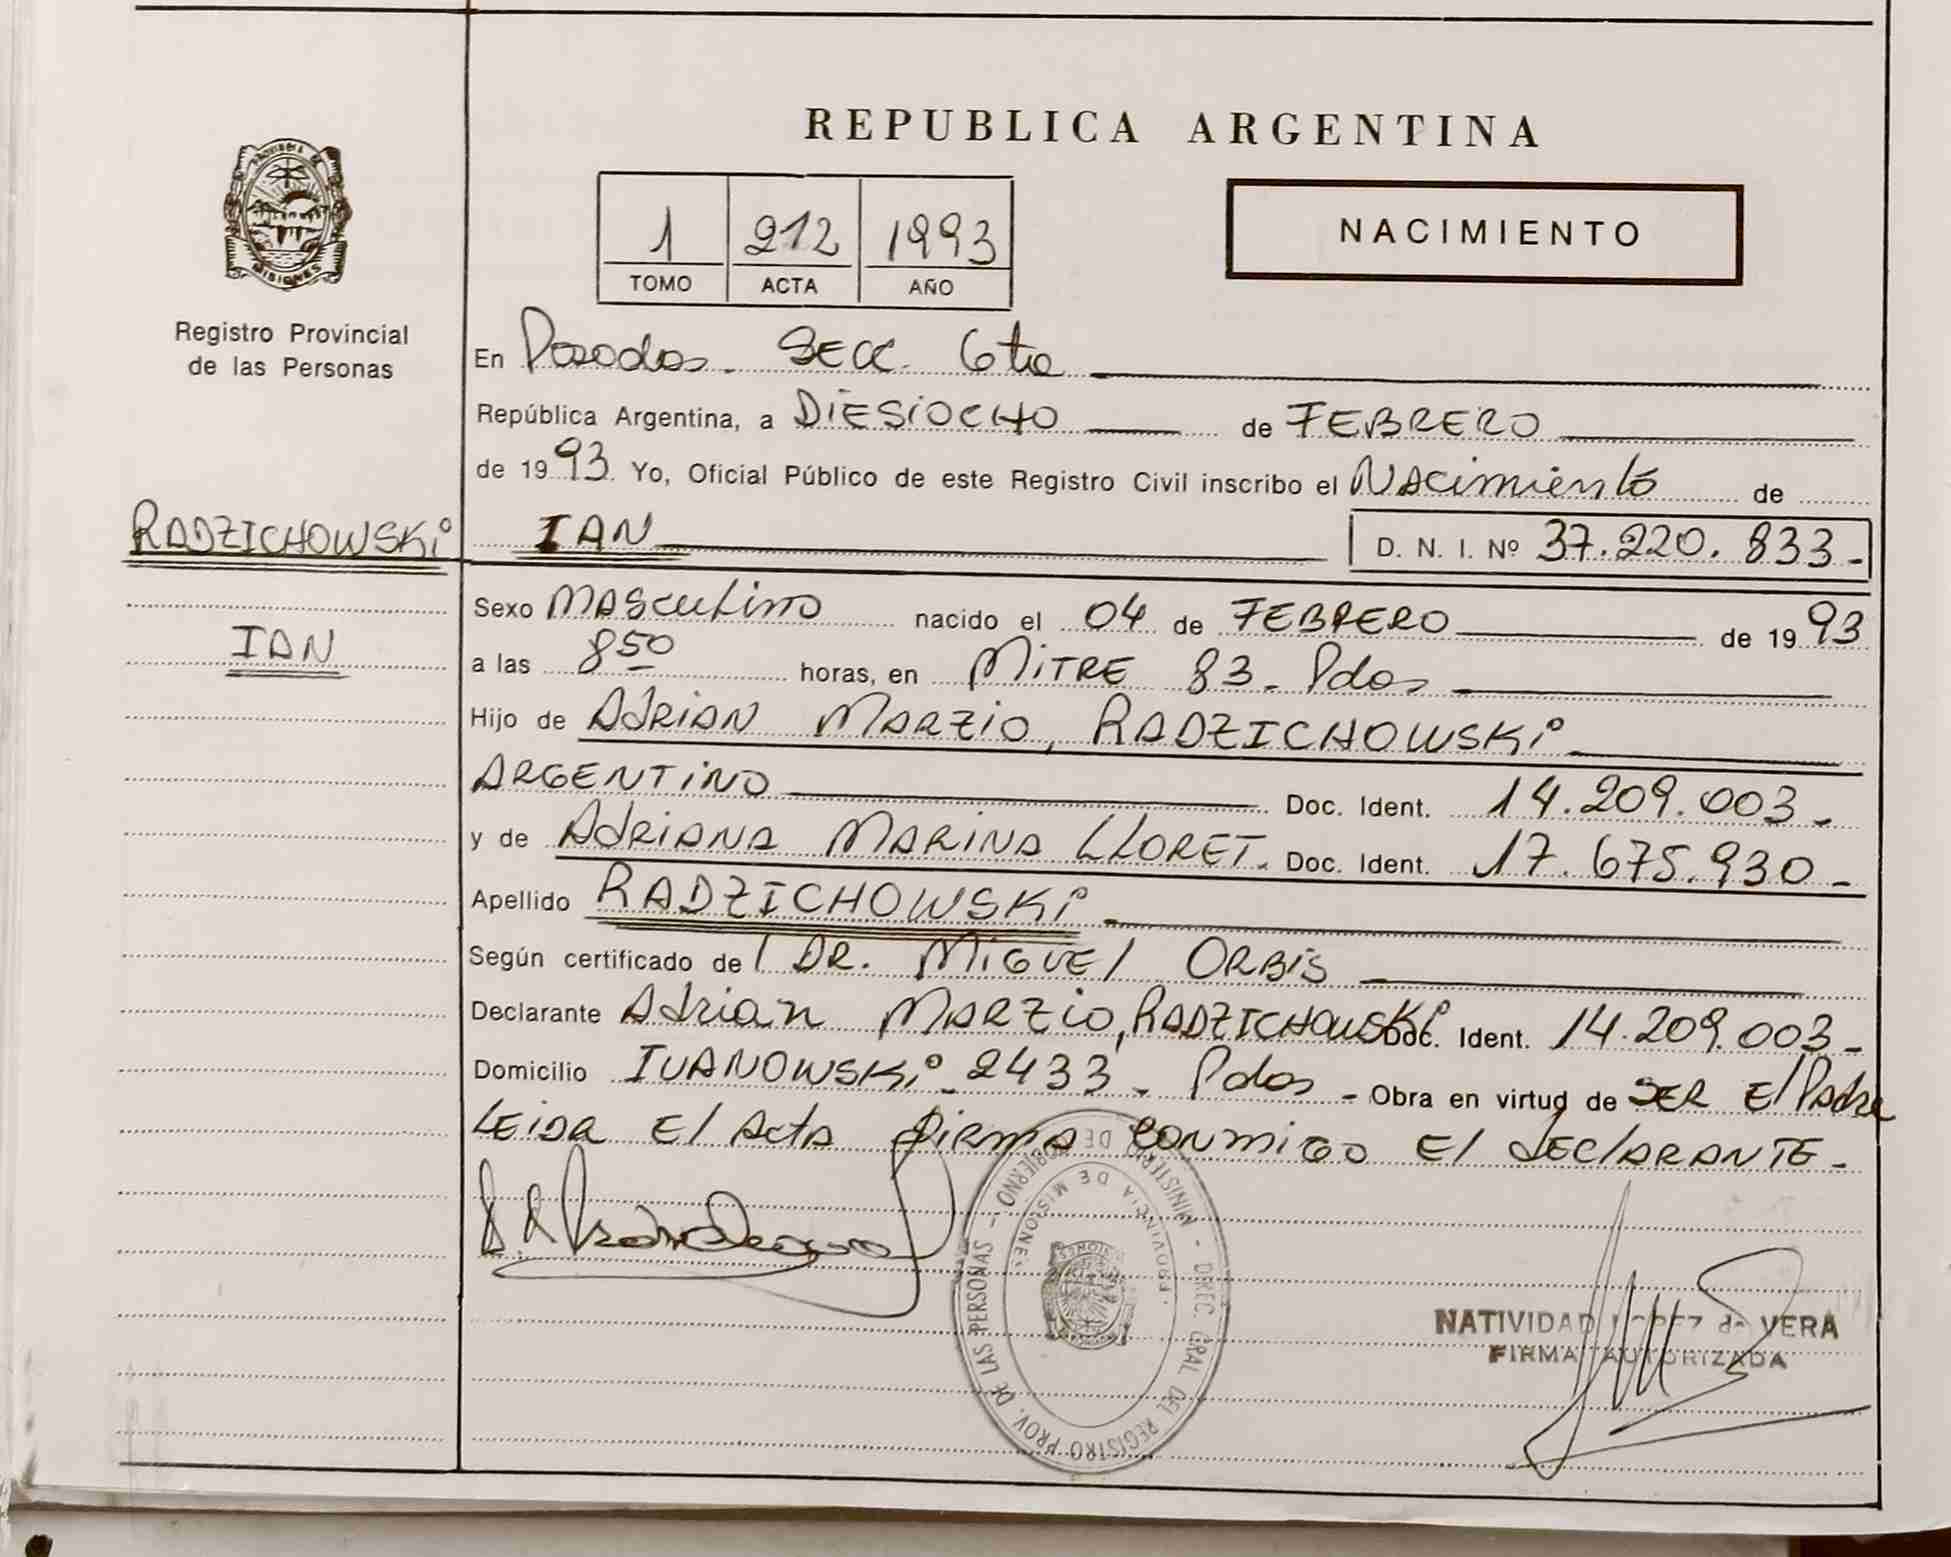 REPUBLICA ARGENTINA
PROVINCIA DE
MISIONES
Registro Provincial
de las Personas
1 212 1993
TOMO ACTA AÑO
NACIMIENTO
En Posadas. SECC. 6ta
República Argentina, a DIESIOCHO de FEBRERO
de 1993. Yo, Oficial Público de este Registro Civil inscribo el NACimiento de
RADZICHOWSKi IAN D. N. I. Nº 37.220.833-
IAN
Sexo MASCULINO nacido el 04 de FEBRERO de 1993
a las 8 50 horas, en MITRE 83 - Pdas
Hijo de ADRIAN MARZIO, RADZICHOWSKi
ARGENTINO Doc. Ident. 14.209.003-
y de ADRIANA MARINA LLORET. Doc. Ident. 17.675.930-
Apellido RADZICHOWSKi
Según certificado del DR. MIGUEL ORBIS
Declarante Adrian MARZIO, RADZICHOWSKi Doc. Ident. 14.209.003-
Domicilio IVANOWSKi - 2433 - Pdas - Obra en virtud de SER El Padre
LEIDA El Acta firma conmigo El dEClARANTE-
MINISTERIO DE GOBIERNO - DIREC. GRAL DEL REGISTRO PROV. DE LAS PERSONAS -
PROVINCIA DE MISIONES
NATIVIDAD LOPEZ de VERA
FIRMA AUTORIZADA